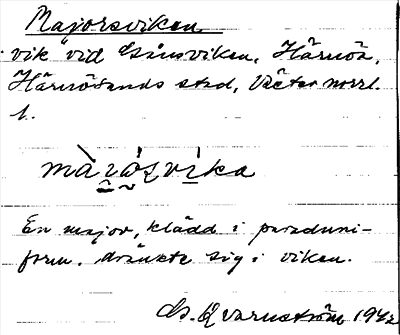 Majorsviken.
vik vid Gånsviken, Härnön,
Härnösands stad, Väster norrl.
l.
En major, klädd i paraduni-
form, dränkte sig i viken.
Qvarnström 194